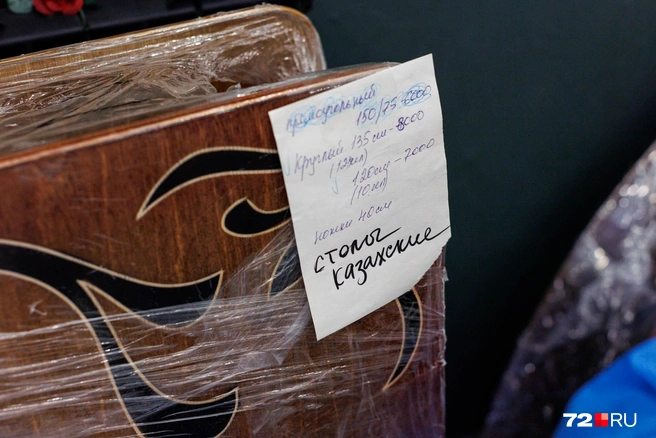 прямоугольный
150/75-6000
Круглый 135см-8000
(12чел)
120см-7000
(10чел)
ножки 40см
столы
казахские
72RU